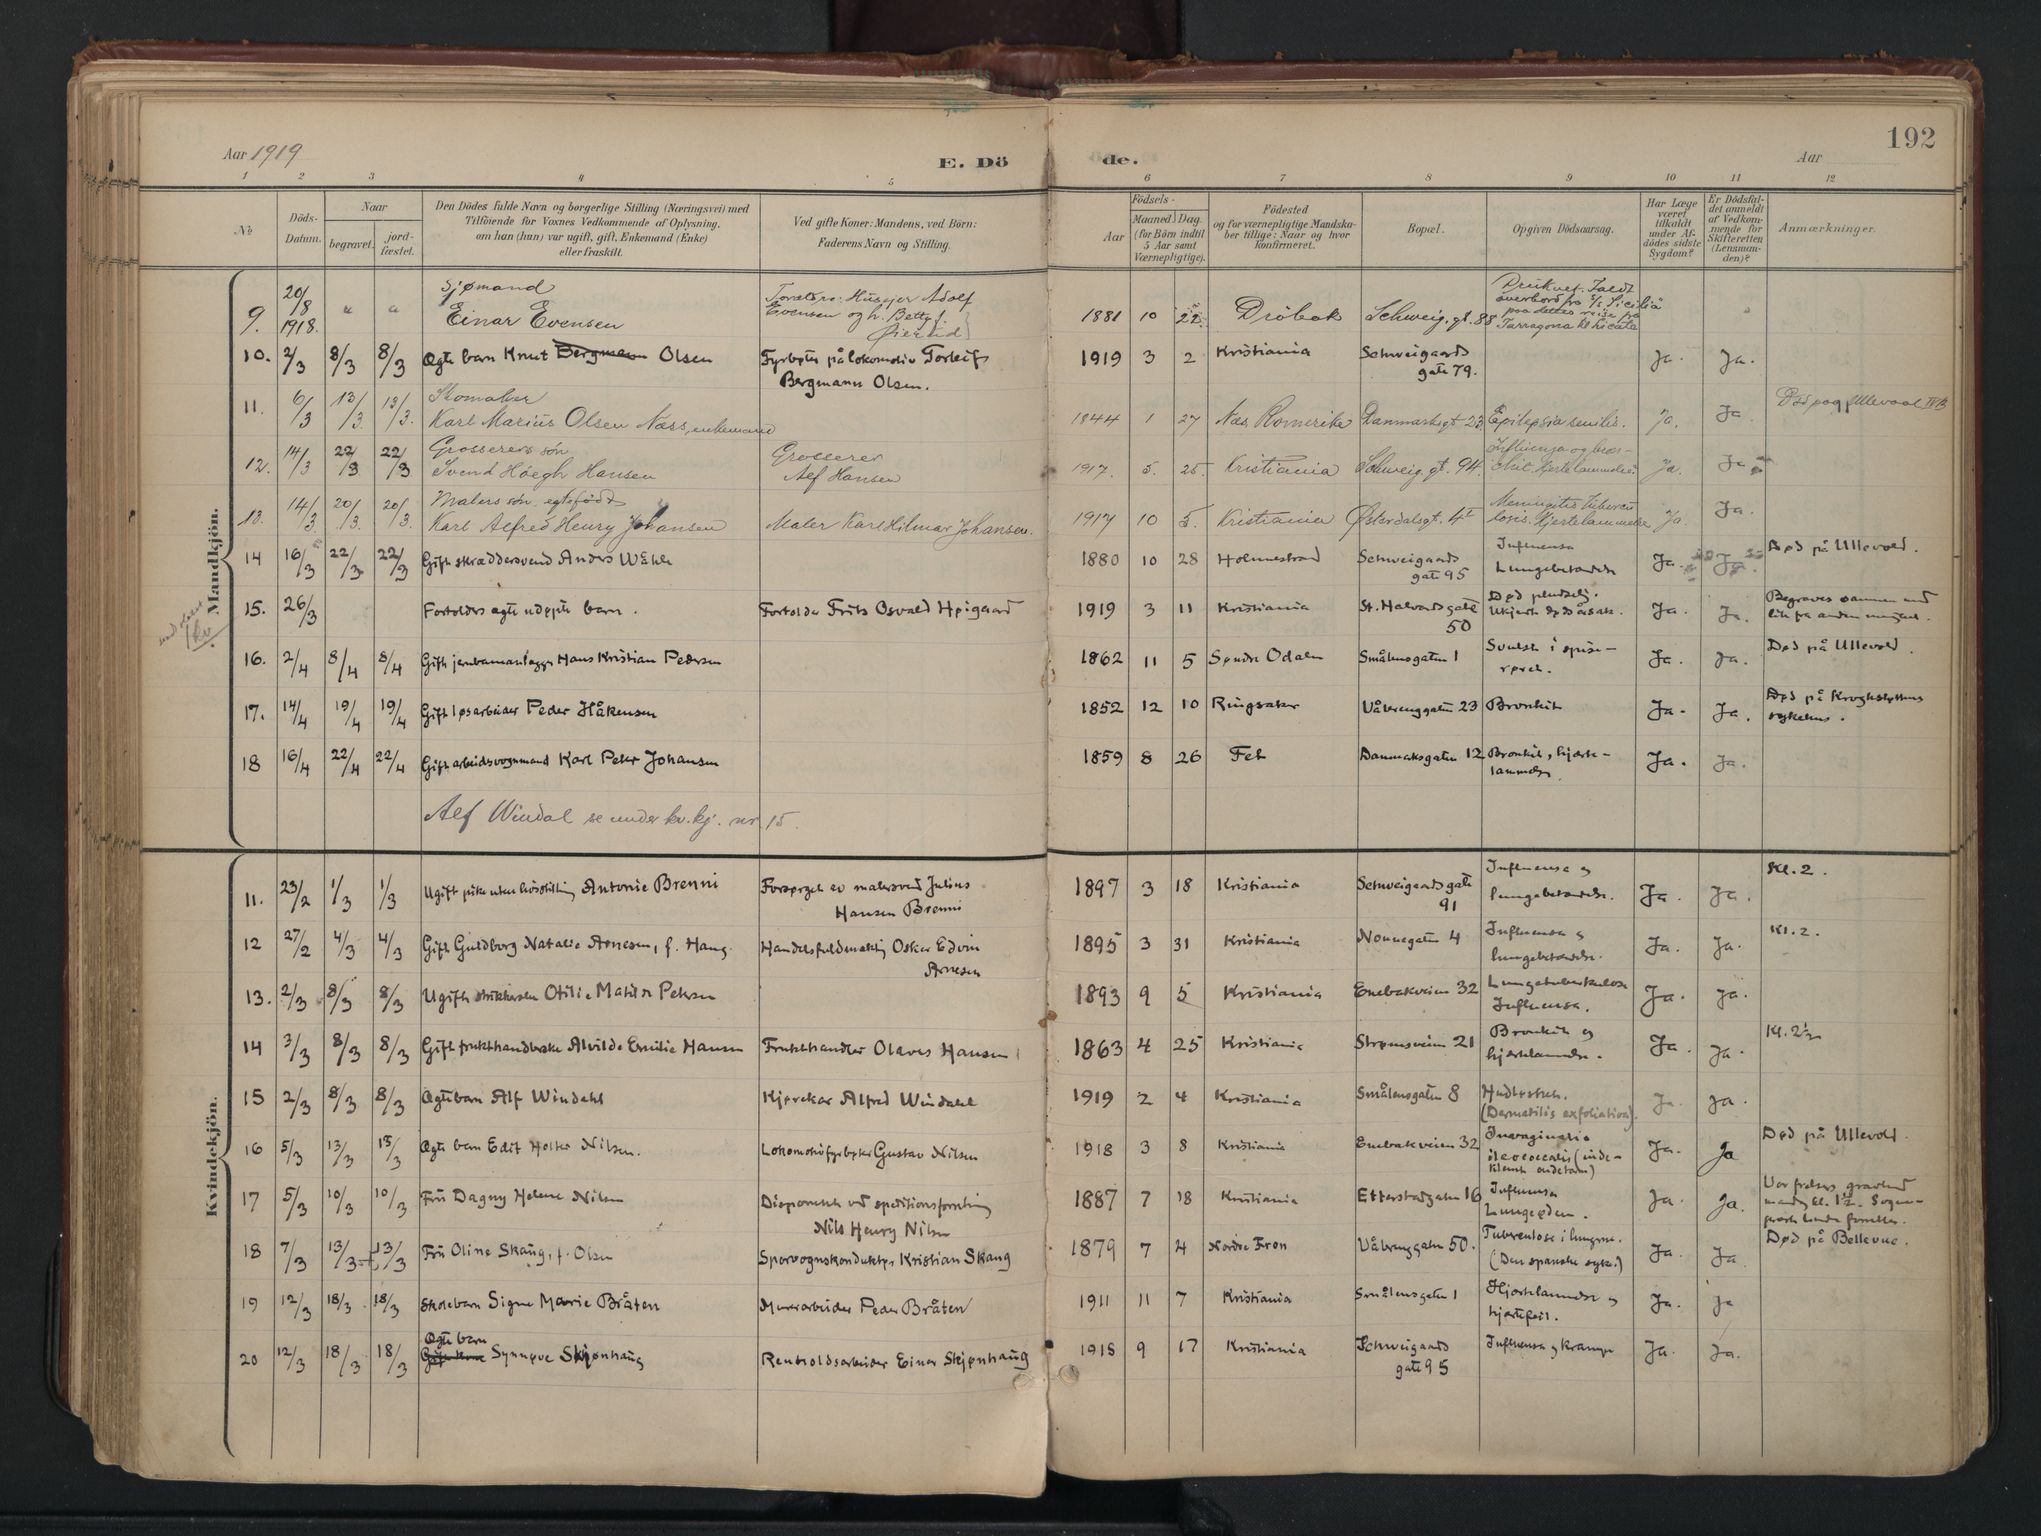 192
Aar 1919
E. Dö
de.
Aar
1 2 3 4 5 6 7 8 9 10 11 12
No
Döds-Datum.
Naar
begravet.
jord-fæstet.
Den Dödes fulde Navn og borgerlige Stilling (Næringsvei) med
Tilföiende for Voxnes Vedkommende af Oplysning,
om han (hun) var ugift, gift, Enkemand (Enke)
eller fraskilt.
Ved gifte Koner: Mandens, ved Börn:
Faderens Navn og Stilling.
Födsels-
Aar
Maaned. Dag.
(for Börn indtil
5 Aar samt
Værnepligtige).
Födested
og for værnepligtige Mandska-
ber tillige: Naar og hvor
konfirmeret.
Bopæl.
Opgiven Dödsaarsag.
Har Læge
været
tilkaldt
under Af-
dödes sidste
Sygdom?
Er Dödsfal-
det anmeldt
af Vedkom-
mende for
Skifteretten
(Lensman-
den)?
Anmærkninger.
Mandkjön.
9. 20/8 1918. " " Sjømand
Einar Evensen
Husejer Adolf
Evensen og h. Betty f.
1881 10 22 Dröbak Schweig. gt. 88 Druknet. Faldt
overbord fra S/S Sicilia
paa dettes reise fra
Tarragona til Licata
10. 2/3 8/3 8/3 Ægte barn Knut Bergmann Olsen Fyrbøter på lokomotiv Torleif
Bergmann Olsen.
1919 3 2 Kristiania Schweigaards
gate 79. Ja. Ja.
11. 6/3 13/3. 13/3. Skomaker
Karl Marius Olsen Næss, enkemand
1844 1 27 Næs Romerike Danmarksgt 23. Epilepsia senilis. Ja. Ja
12. 14/3 22/3 22/3 Grosserers sön
Svend Höegh Hansen
Grosserer
Alf Hansen
1917. 5. 25 Kristiania Schweig. gt. 94. Influenza og bron-
chit. Hjertelammelse Ja. Ja
13. 14/3 20/3. 20/3. Malers søn, egtefødt
Karl Alfred Henry Johansen Maler Karl Hilmar Johansen.
1917 10 5. Kristiania Østerdalsgt. 4 I Meningitis tubercu
losis. Hjertelammelse Ja. Ja.
14 16/3 22/3 22/3 Gift skræddersvend Anders Wæhle
1880 10 28 Holmestrand Schweigaards
gate 95 Influensa
Lungebetændelse Ja. Ja. Død på Ullevold.
15. 26/3 Fortolders ægte udøpte barn. Fortolder Frits Osvald Høigaard
1919 3 11 Kristiania St. Halvards gate
50 Død pludselig.
Ukjent dødsårsak. Ja. Ja. Begraves sammen med
lik fra anden menighet.
16. 2/4 8/4 8/4 Gift jernbananlægger Hans Kristian Pedersen
1862 11 5 Søndre Odalen Smålensgaten 1 Svulst i spise-
røret. Ja. Ja. Død på Ullevold.
17. 14/4 19/4 19/4 Gift løsarbeider Peder Håkensen
1852 12 10 Ringsaker Vålerenggaten 23 Bronkit Ja. Ja. Død på Krogkstøttens
sykehus.
18 16/4 22/4 22/4 Gift arbeidsvognmand Karl Peter Johansen
1859 8 26 Fet Danmarksgaten 12 Bronkit, hjerte-
lammelse. Ja. Ja.
Alf Windal se under kv. kj. nr. 15.
Kvindekjön.
11. 23/2 1/3 1/3 Ugift pike uten livsstilling Antonie Brenni Forsørget av malersvend Julius
Hansen Brenni
1897 3 18 Kristiania Schweigaards gate
91 Influensa og
lungebetændelse. Ja. Ja. Kl. 2.
12 27/2 4/3 4/3 Gift Guldborg Natalie Arnesen, f. Haug. Handelsfuldmektig Oskar Edvin
Arnesen
1895 3 31 Kristiania Nonnegaten 4 Influensa og
lungebetændelse. Ja. Ja. Kl. 2.
13. 2/3 8/3 8/3 Ugift strikkerske Otilie Matilde Petersen
1893 9 5 Kristiania Enebakveien 32 Lungetuberkulose
Influensa. Ja. Ja.
14 3/3 8/3 8/3 Gift frukthandlerske Alvilde Emilie Hansen Frukthandler Olaves Hansen
1863 4 25 Kristiania Strømsveien 21 Bronkit og
hjertelammelse. Ja. Ja. Kl. 2½
15 2/3 8/3 8/3 Ægte barn Alf Windahl Kjørekar Alfred Windahl
1919 2 4 Kristiania Smålensgaten 8 Hudløshet.
(Dermatitis exfoliativa). Ja. Ja.
16 5/3 13/3 13/3 Ægte barn Edit Holter Nilsen. Lokomotivfyrbøter Gustav Nilsen
1918 3 8 Kristiania Enebakveien 32 Invaginatio
ileocoecalis (inde-
klemt endetarm) Ja. Ja Død på Ullevold.
17 5/3 10/3 10/3 Fru Dagny Helene Nilsen Disponent ved speditionsforretning
Nils Henry Nilsen
1887 7 18 Kristiania Etterstadgaten 16 Influensa
Lungeødem. Ja. Ja. Vor frelsers gravlund
mandag kl. 1½. Sogne-
prest Lunde forretter.
18 7/3 13/3 13/3 Fru Oline Skaug, f. Olsen Sporvognskonduktør Kristian Skaug
1879 7 4 Nordre Fron Vålerenggaten 50. Tuberkulose i lungene.
(Den spanske syke.) Ja. Ja. Død på Bellevue.
19 12/3 18/3 18/3 Skolebarn Signe Marie Bråten Murerarbeider Peder Bråten
1911 11 7 Kristiania Smålensgaten 1 Hjertelammelse og
hjertefeil. Ja. Ja
20 12/3 18/3 18/3 Ægte barn
Gift kone Synnøve Skjønhaug Renholdsarbeider Einar Skjønhaug
1918 9 17 Kristiania Schweigaards
gate 95 Influensa og krampe Ja. Ja.